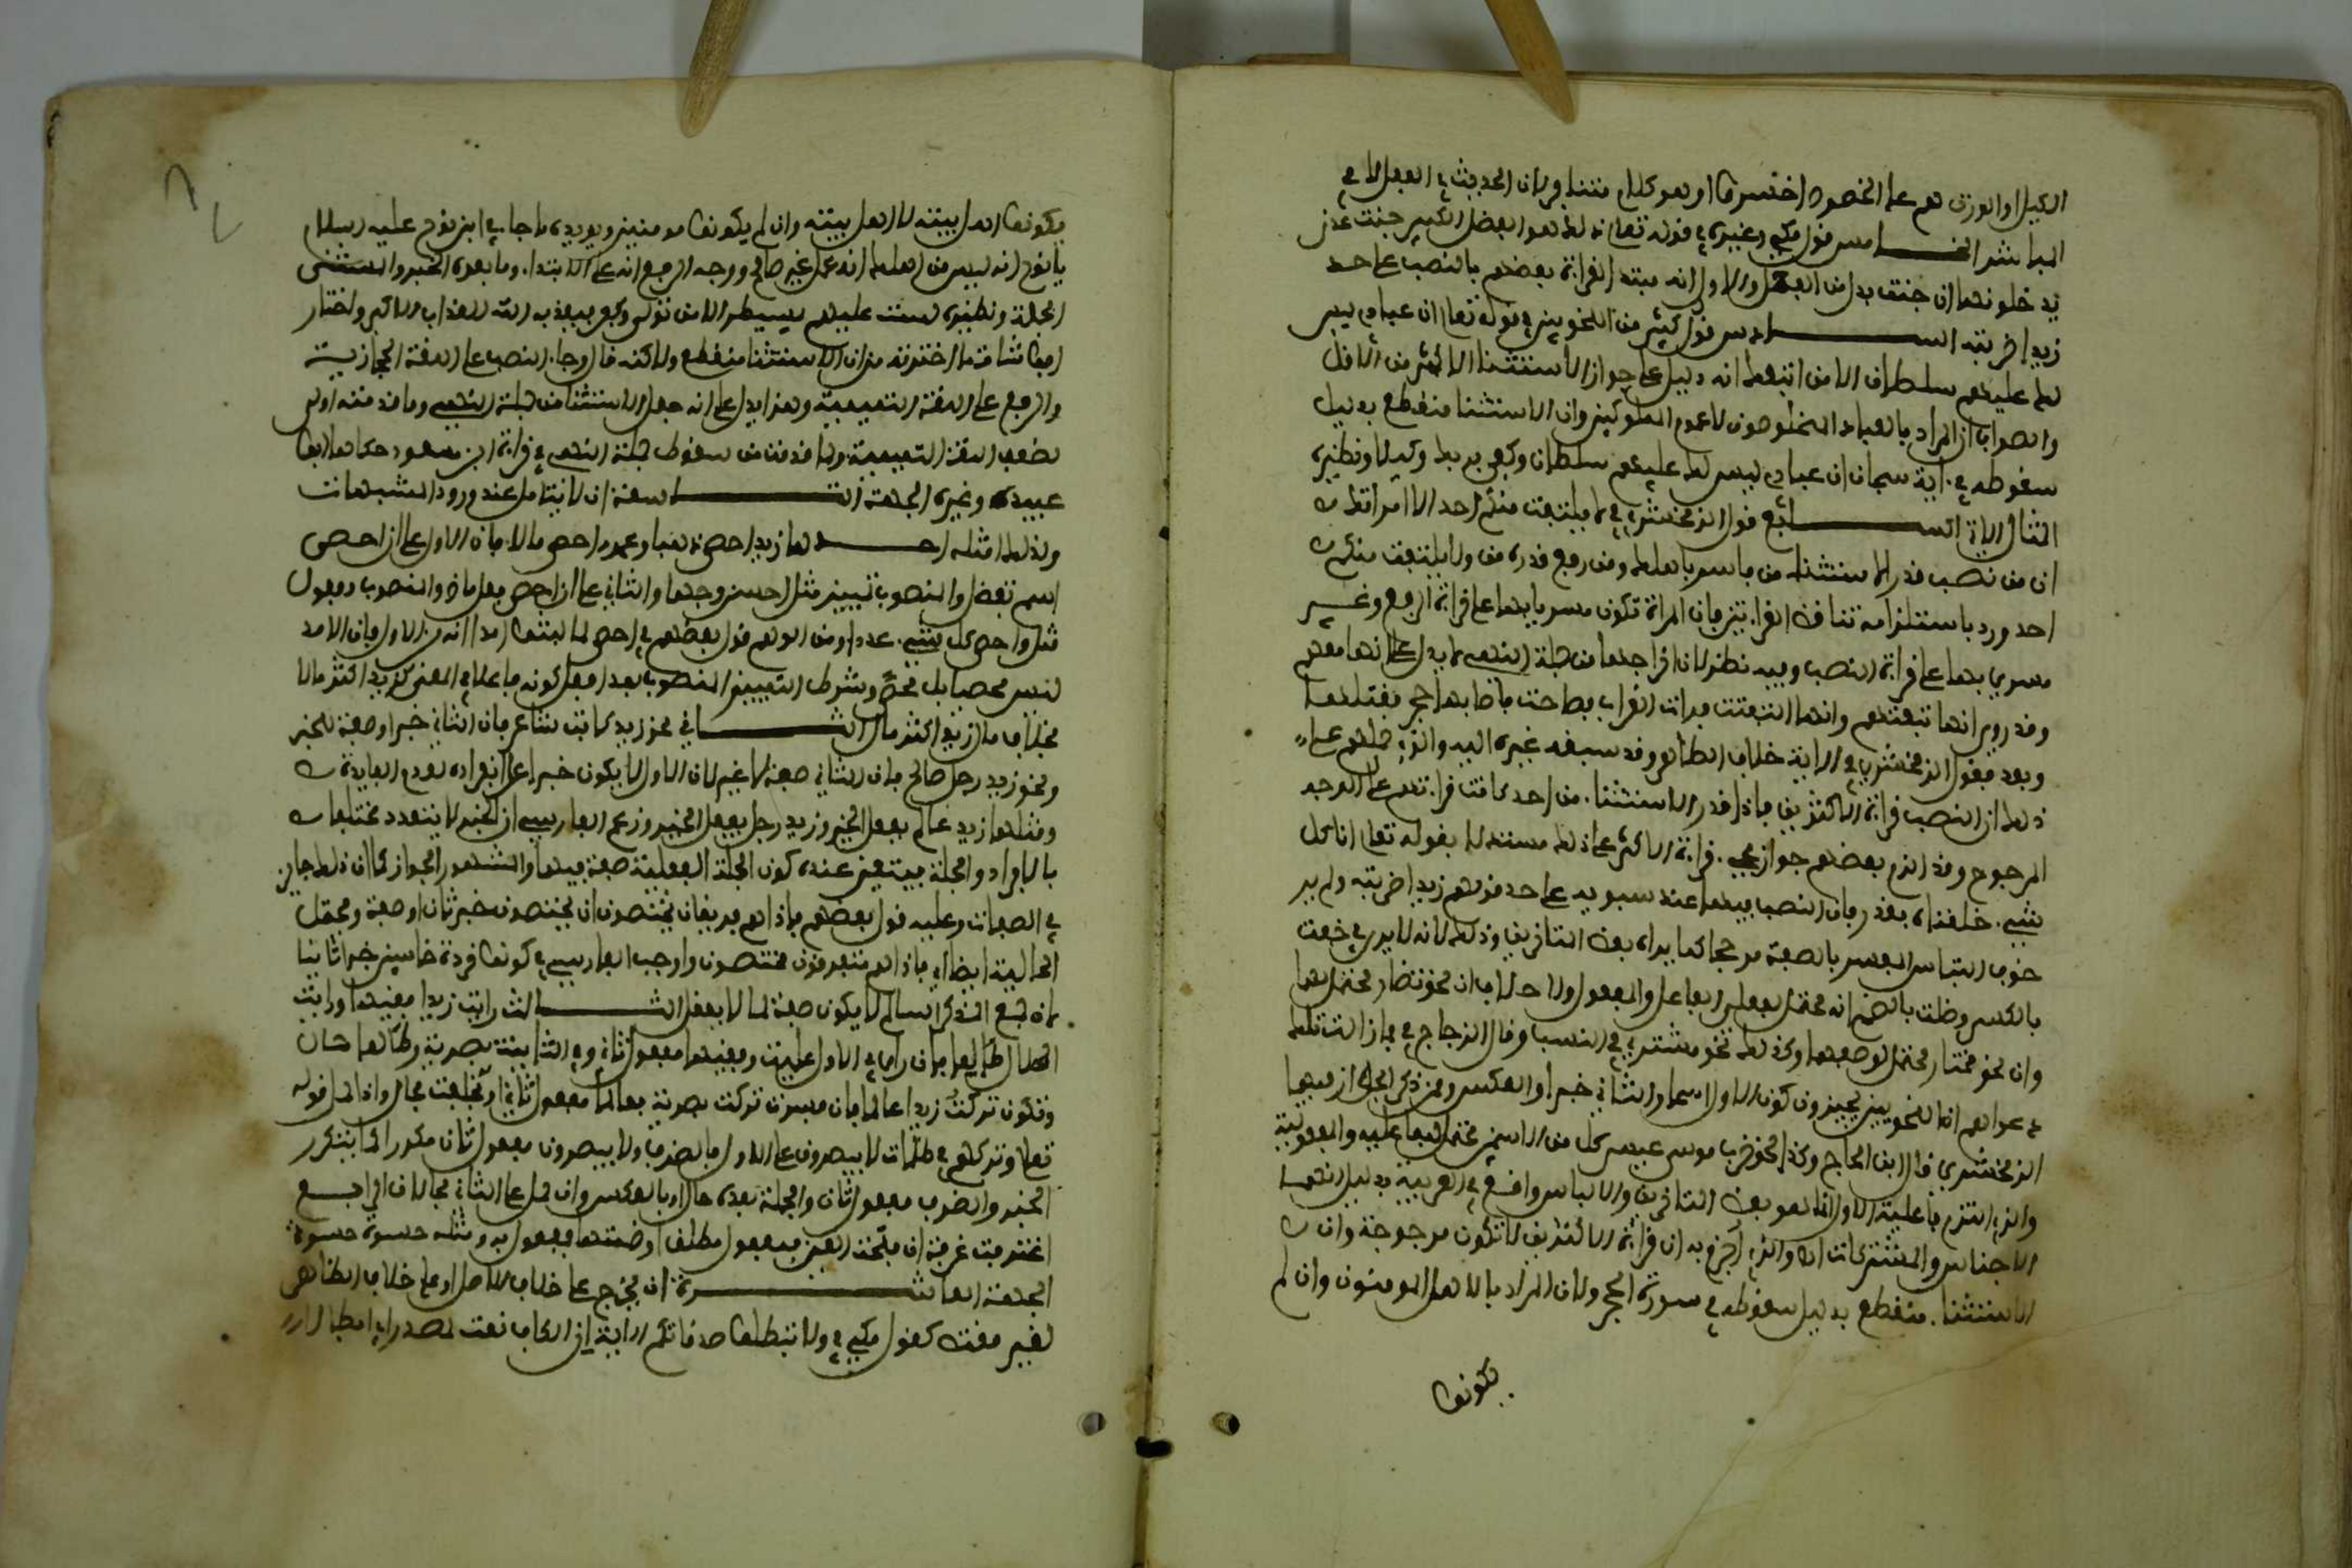 الكيل او الوزن هم على الخصوص اخسروا وهو كلام متنافر لان الحديث في الفعل لا في
المباشر الخــــامس قول مكي وغيره في قوله تعالى ذلك هو الفضل الكبير جنت عدن
يدخلونها ان جنت بدل من الفضل والاولى انه مبتدا لقراءة بعضهم بالنصب على حد
زيدا ضربته الســــادس قول كثير من النحويين في قوله تعالى ان عبادي ليس
لك عليهم سلطان الا من اتبعك انه دليل على جواز الاستثنا الاكثر من الاقل
والصواب ان المراد بالعباد المخلصون لا عموم المملوكين وان الاستثنا منقطع بدليل
سقوطه في ءاية سبحان ان عبادي ليس لك عليهم سلطان وكفى بربك وكيلا ونظيره
المثال الاتي الســــابع قول الزمخشري في ولا يلتفت منكم احد الا امراتك
ان من نصب قدر الاستثنا من فاسر باهلك ومن رفع قدره من ولا يلتفت منكم
احد ورد باستلزامه تناقض القراءتين فان المراة تكون مسرى بها على قراءة الرفع وغير
مسرى بها على قراءة النصب وفيه نظر لان اخراجها من جملة النهي لا يدل على انها معهم
وقد روي انها تبعتهم وانها التفتت فرات العذاب فصاحت فاصابها حجر فقتلها
وبعد فقول الزمخشري في الاية خلاف الظاهر وقد سبقه غيره اليه والذي حملهم على
ذلك ان النصب قراءة الاكثرين فاذا قدر الاستثنا من احد كانت قراءتهم على الوجه
المرجوح وقد التزم بعضهم جواز مجيء قراءة الاكثر على ذلك مستدلا بقوله تعالى انا كل
شيء خلقناه بقدر فان النصب فيها عند سيبويه على حد قولهم زيدا ضربته ولم ير
خوف التباس المفسر بالصفة مرجحا كما يراه بعض المتاخرين وذلك لانه لا يرى في خفت
بالكسر وطلت بالضم انه محتمل لفعلي الفاعل والمفعول ولا خلاف ان نحو تضار محتمل لهما
وان نحو مختار محتمل لوصفهما وكذلك نحو مشتري في النسب وقال الزجاج في فما زالت تلك
دعواهم ان النحويين يجيزون كون الاول اسما والثاني خبرا والعكس وممن ذكر الجواز فيها
الزمخشري قال ابن الحاج وكذا نحو ضرب موسى عيسى كل من الاسمين محتمل للفاعلية والمفعولية
والذي التزم فاعلية الاول انما هو بعض المتاخرين والالباس واقع في العربية بدليل اسما
الاجناس والمشتركات اه والذي اجزم به ان قراءة الاكثرين لا تكون مرجوحة وان
الاستثنا منقطع بدليل سقوطه في سورة الحجر ولان المراد بالاهل المومنون وان لم
يكونوا
يكونوا اهل بيته لا اهل بيته وان لم يكونوا مومنين ويويده ما جاء في ابن نوح عليه السلام
يا نوح انه ليس من اهلك انه عمل غير صالح ووجه الرفع انه على الابتدا وما بعده الخبر والمستثنى
الجملة ونظيره لست عليهم بمسيطر الا من تولى وكفر فيعذبه الله العذاب الاكبر واختار
ابو شامة ما اخترته من ان الاستثنا منقطع ولاكنه قال وجاء النصب على اللغة الحجازية
والرفع على اللغة التميمية وهذا يدل على انه جعل الاستثنا من جملة النهي وما قدمته اولى
لضعف اللغة التميمية ولما قدمت من سقوط جملة النهي في قراءة ابن مسعود حكاها ابو
عبيدة وغيره الجهة التــــاسعة ان لا يتامل عند ورود المشبهات
ولذلك امثلة احــــدها زيد احصى ذهنا وعمرو احصى مالا فان الاول على ان احصى
اسم تفضيل والمنصوب تمييز مثل احسن وجها والثاني على ان احصى فعل ماض والمنصوب مفعول
مثل واحصى كل شيء عددا ومن الوهم قول بعضهم في احصى لما لبثوا امدا انه من الاول فان الامد
ليس محصيا بل محصى وشرط التمييز المنصوب بعد افعل كونه فاعلا في المعنى كزيد اكثر مالا
بخلاف مال زيد اكثر مال الثــــاني نحو زيد كاتب شاعر فان الثاني خبر او صفة للخبر
ونحو زيد رجل صالح فان الثاني صفة لا غير لان الاول لا يكون خبرا على انفراده لعدم الفايدة
ومثلهما زيد عالم يفعل الخير وزيد رجل يفعل الخير وزعم الفارسي ان الخبر لا يتعدد مختلفا
بالافراد والجملة فيتعين عنده كون الجملة الفعلية صفة فيهما والمشهور الجواز كما ان ذلك جايز
في الصفات وعليه قول بعضهم فاذا هم فريقان يختصمون ان يختصمون خبر ثان او صفة ومحتمل
الحالية ايضا اي فاذا هم متفرقون مختصمون واوجب الفارسي في كونوا قردة خاسئين خبرا ثانيا
لان جمع المذكر السالم لا يكون صفة لما لا يعقل الثــــالث رايت زيدا فقيها ورايت
الهلال طالعا فان راى في الاول علمية وفقيها مفعول ثان وفي الثاني بصرية وطالعا حال
وتقول تركت زيدا عالما فان فسرت تركت بصيرت فعالما مفعول ثان او بخلفت فحال واذا حمل قوله
تعالى وتركهم في ظلمات لا يبصرون على الاول فالظرف ولا يبصرون مفعول ثان مكرر كما يتكرر
الخبر والظرف مفعول ثان والجملة بعده حال او بالعكس وان حمل على الثاني فحالان الرابــع
اغترف غرفة ان فتحت الغين فمفعول مطلق او ضمتها فمفعول به ومثله حسوت حسوة
الجهة العاشــــرة ان يخرج على خلاف الاصل او على خلاف الظاهر
لغير مقتض كقول مكي في ولا تبطلوا صدقاتكم الاية ان الكاف نعت لمصدر اي ابطالا